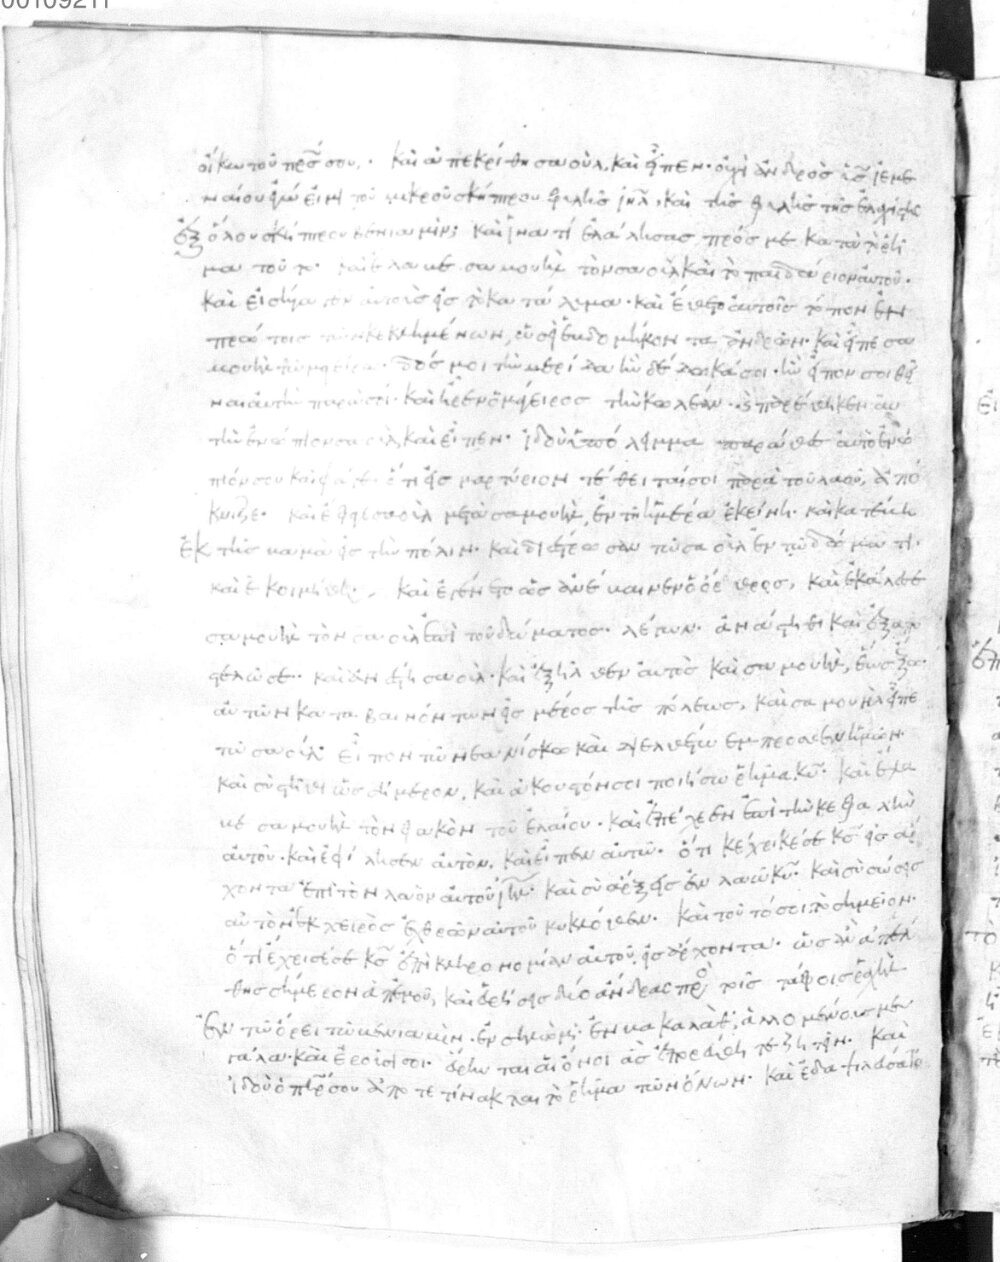 00109211
οἴκω τοῦ πρς σου. καὶ ἀπεκρίθη σαοὺλ καὶ εἶπεν. οὐχὶ ἀνδρὸς υἱὸς ἰεμε
ναίου ἐγώ εἰμι τοῦ μικροῦ σκήπτρου φυλῆς ιηλ. καὶ τῆς φυλῆς τῆς ἐλαχίστης
ἐξ ὅλου σκήπτρου βενιαμίν; καὶ ἵνα τί ἐλάλησας πρός με κατὰ τὸ ῥῆ
μα τοῦτο. καὶ ἔλαβε σαμουὴλ τὸν σαοὺλ καὶ τὸ παιδάριον αὐτοῦ.
καὶ εἰσήγαγεν αὐτοὺς εἰς τὸ κατάλυμα. καὶ ἔθετο αὐτοῖς τόπον ἐν
πρώτοις τῶν κεκλημένων, ὡσεὶ ἑβδομήκοντα ἀνδρῶν. καὶ εἶπε σα
μουὴλ τῷ μαγείρω. δός μοι τὴν μερίδα ἣν δέδωκά σοι. ἣν εἶπόν σοι θεῖ
ναι αὐτὴν παρὰ σοί. καὶ ἦρεν ὁ μάγειρος τὴν κωλέαν. καὶ παρέθηκεν αὐ
τὴν ἐνώπιον σαοὺλ καὶ εἶπεν. ἰδοὺ ὑπόλειμμα παράθες αὐτὸ ἐνώ
πιόν σου καὶ φάγε. ὅτι εἰς μαρτύριον τέθειταί σοι παρὰ τοῦ λαοῦ, ἀπό
κνιζε. καὶ ἔφαγε σαοὺλ μετὰ σαμουὴλ, ἐν τῇ ἡμέρα ἐκείνη. καὶ κατέβη
ἐκ τῆς βαμὰ εἰς τὴν πόλιν. καὶ διέστρωσαν τῶ σαοὺλ ἐν τῶ δώματι.
καὶ ἐκοιμήθη. καὶ ἐγένετο ὡς ἀνέβαινεν ὁ ὄρθρος, καὶ ἐκάλεσε
σαμουὴλ τὸν σαοὺλ ἐπὶ τοῦ δώματος λέγων. ἀνάστηθι καὶ ἐξαπο
στελῶ σε. καὶ ἀνέστη σαοὺλ. καὶ ἐξῆλθεν αὐτὸς καὶ σαμουὴλ, ἕως ἔξω.
αὐτῶν καταβαινόντων εἰς μέρος τῆς πόλεως, καὶ σαμουὴλ εἶπε
τῶ σαοὺλ. εἶπον τῶ νεανίσκω καὶ διελθέτω ἔμπροσθεν ἡμῶν.
καὶ σὺ στῆθι ὡς σήμερον, καὶ ἄκουσόν σοι ποιήσω ῥῆμα κυ. καὶ ἔλα
βε σαμουὴλ τὸν φακὸν τοῦ ἐλαίου. καὶ ἐπέχεεν ἐπὶ τὴν κεφαλὴν
αὐτοῦ. καὶ ἐφίλησεν αὐτὸν, καὶ εἶπεν αὐτῶ. ὅτι κέχρικέ σε κς εἰς ἄρ
χοντα ἐπὶ τὸν λαὸν αὐτοῦ ιηλ. καὶ σὺ ἄρξεις ἐν λαῶ κυ. καὶ σὺ σώσεις
αὐτὸν ἐκ χειρὸς ἐχθρῶν αὐτοῦ κυκλόθεν. καὶ τοῦτό σοι τὸ σημεῖον.
ὅτι ἔχρισέ σε κς ἐπὶ κληρονομίαν αὐτοῦ εἰς ἄρχοντα. ὡς ἂν ἀπέλ
θης σήμερον ἀπ' ἐμοῦ, καὶ εὑρήσεις δύο ἄνδρας πρὸς τοῖς τάφοις ῥαχὴλ
ἐν τῶ ὄρει τῶ βενιαμὶν. ἁλλομένους μεγά
λα. καὶ ἐροῦσί σοι. εὕρηνται αἱ ὄνοι ἃς ἐπορεύθητε ζητεῖν. καὶ
ἰδοὺ ὁ πηρ σου ἀποτετίνακται τὸ ῥῆμα τῶν ὄνων. καὶ ἐδαψιλεύσατο